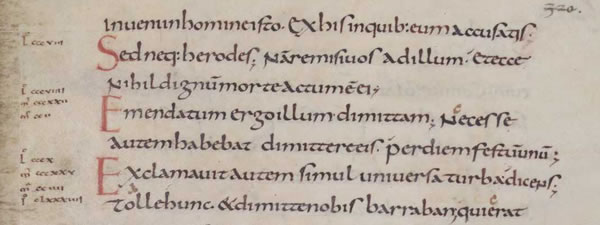 320.
inuenı in homine isto. Ex his inquib; eum accusatis.
L cccviii
Sed neq; herodes; Nā remisi uos ad illum. et ecce
Nihil dignū morte actum ē ei;
L cccviiii
Emendatum ergo illum dimittam; Necesse
autem habebat dimittere eis. per diem festū unū;
L cccx
Exclamauit autem simul uniuersa turba dicens;
tolle hunc. & dimitte nobis barraban; qui erat